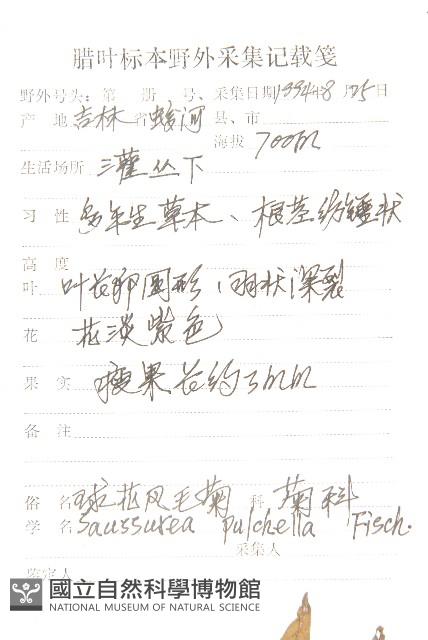 腊叶标本野外采集记载笺
野外号头：第 册 号、采集日期1994年8月25日
产 地 吉林 省 蛟河 县、市
海拔 700m
生活场所 灌丛下
习 性 多年生草本、根茎纺锤状
高 度
叶 叶长卵圆形，羽状深裂
花 花淡紫色
果 实 瘦果长约3mm
备 注
俗 名 球花风毛菊 科 菊科
学 名 Saussurea pulchella Fisch.
采集人
鉴定人
國立自然科學博物館
NATIONAL MUSEUM OF NATURAL SCIENCE